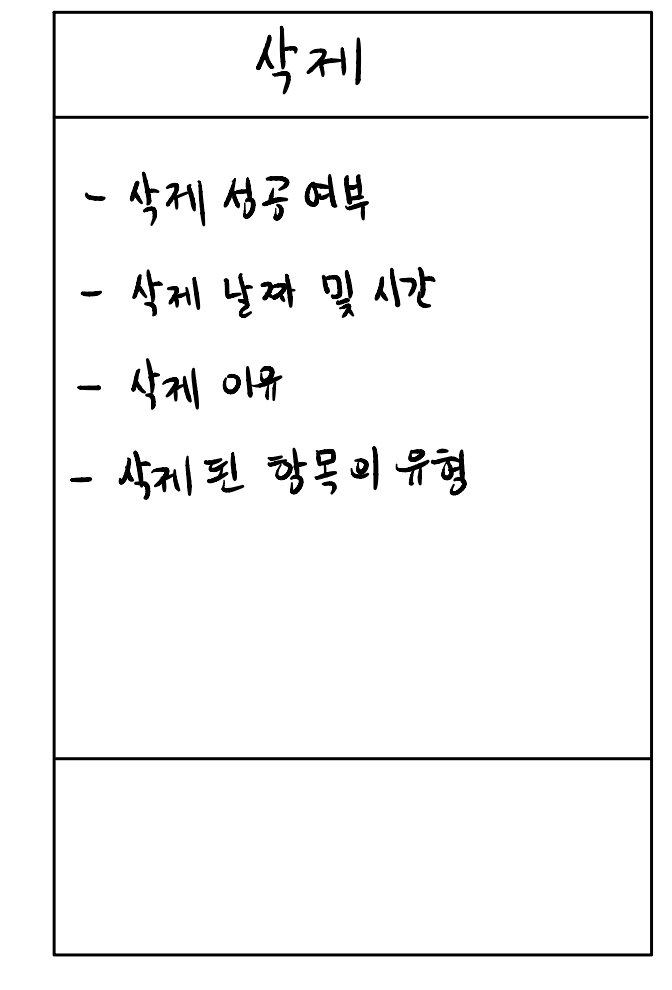 삭제
- 삭제 성공 여부
- 삭제 날짜 및 시간
- 삭제 이유
- 삭제된 항목의 유형